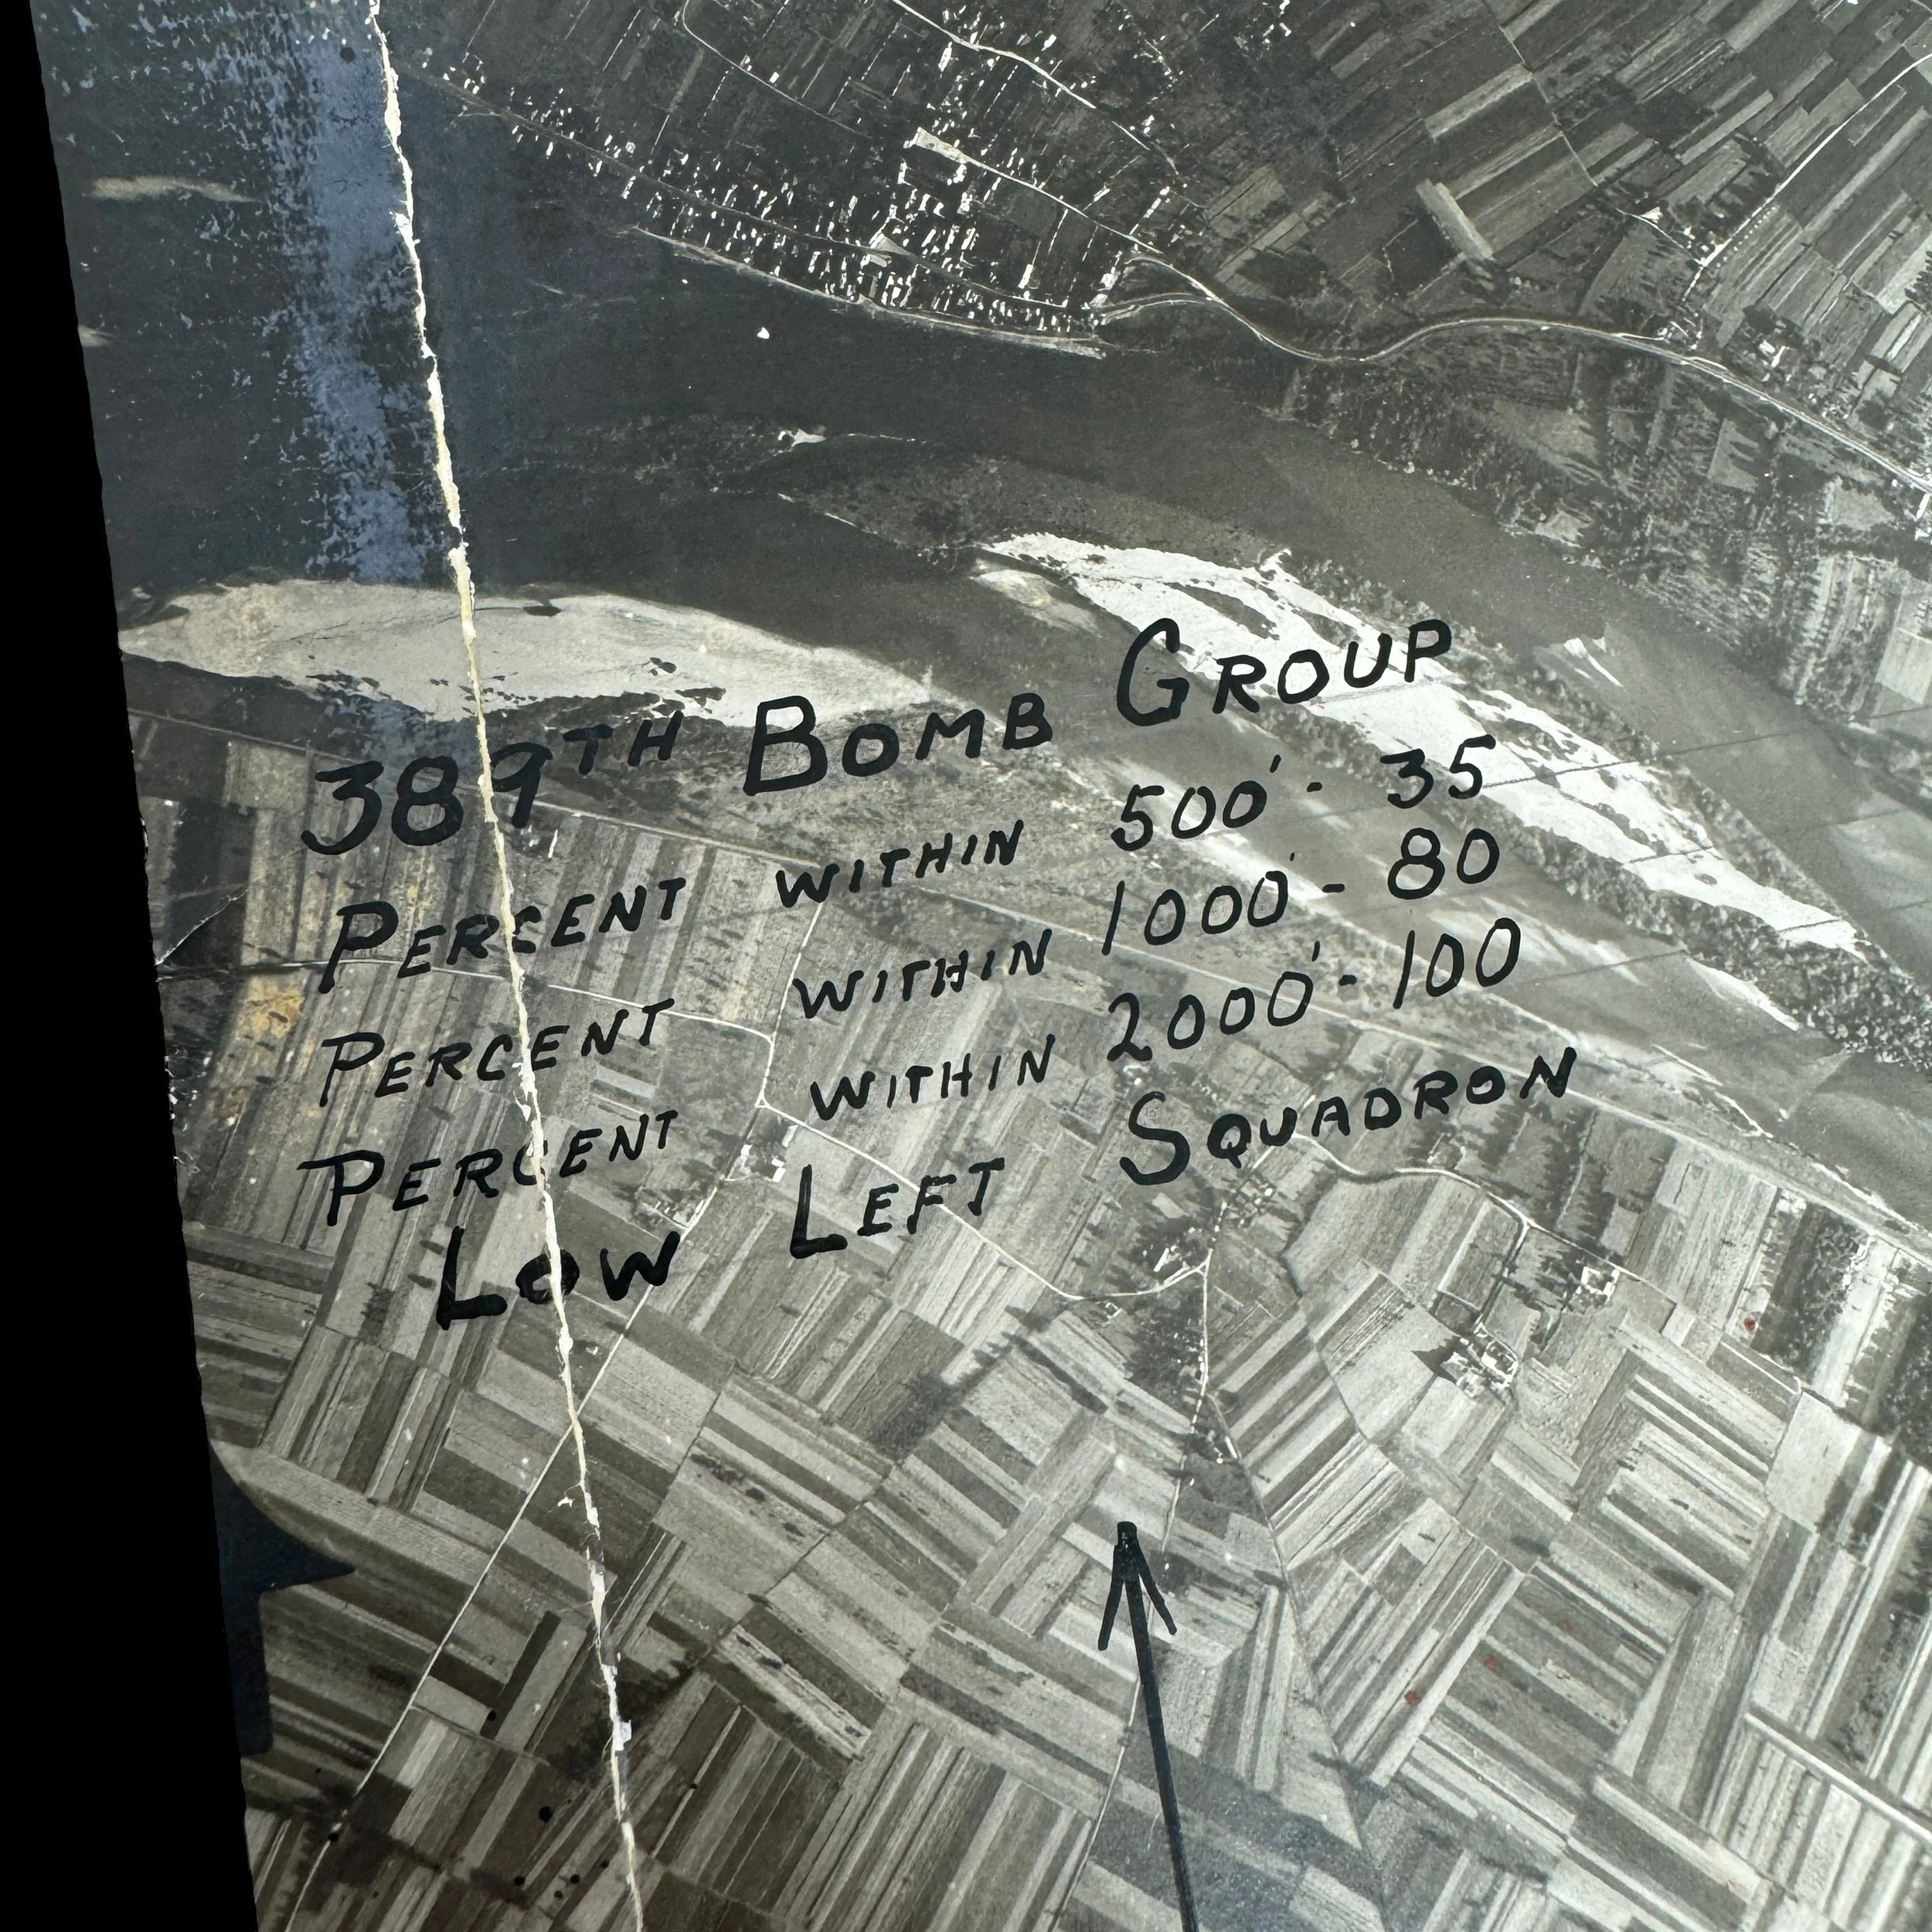 389TH BOMB GROUP
PERCENT WITHIN 500' - 35
PERCENT WITHIN 1000' - 80
PERCENT WITHIN 2000' - 100
LOW LEFT SQUADRON